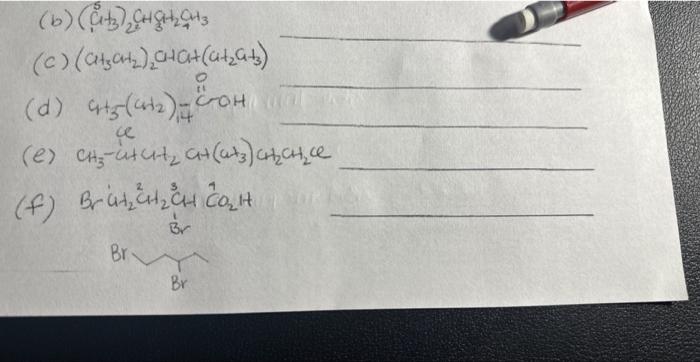 (b) (CH3)2CHCH2CH3
1 2 3 4 5
(c) (CH3CH2)2CHCH(CH2CH3)
O
(d) CH3-(CH2)14-C-OH
Cl
(e) CH3-CHCH2CH(CH3)CH2CH2Cl
1 2 3 4
(f) BrCH2CH2CHCO2H
Br
Br
Br